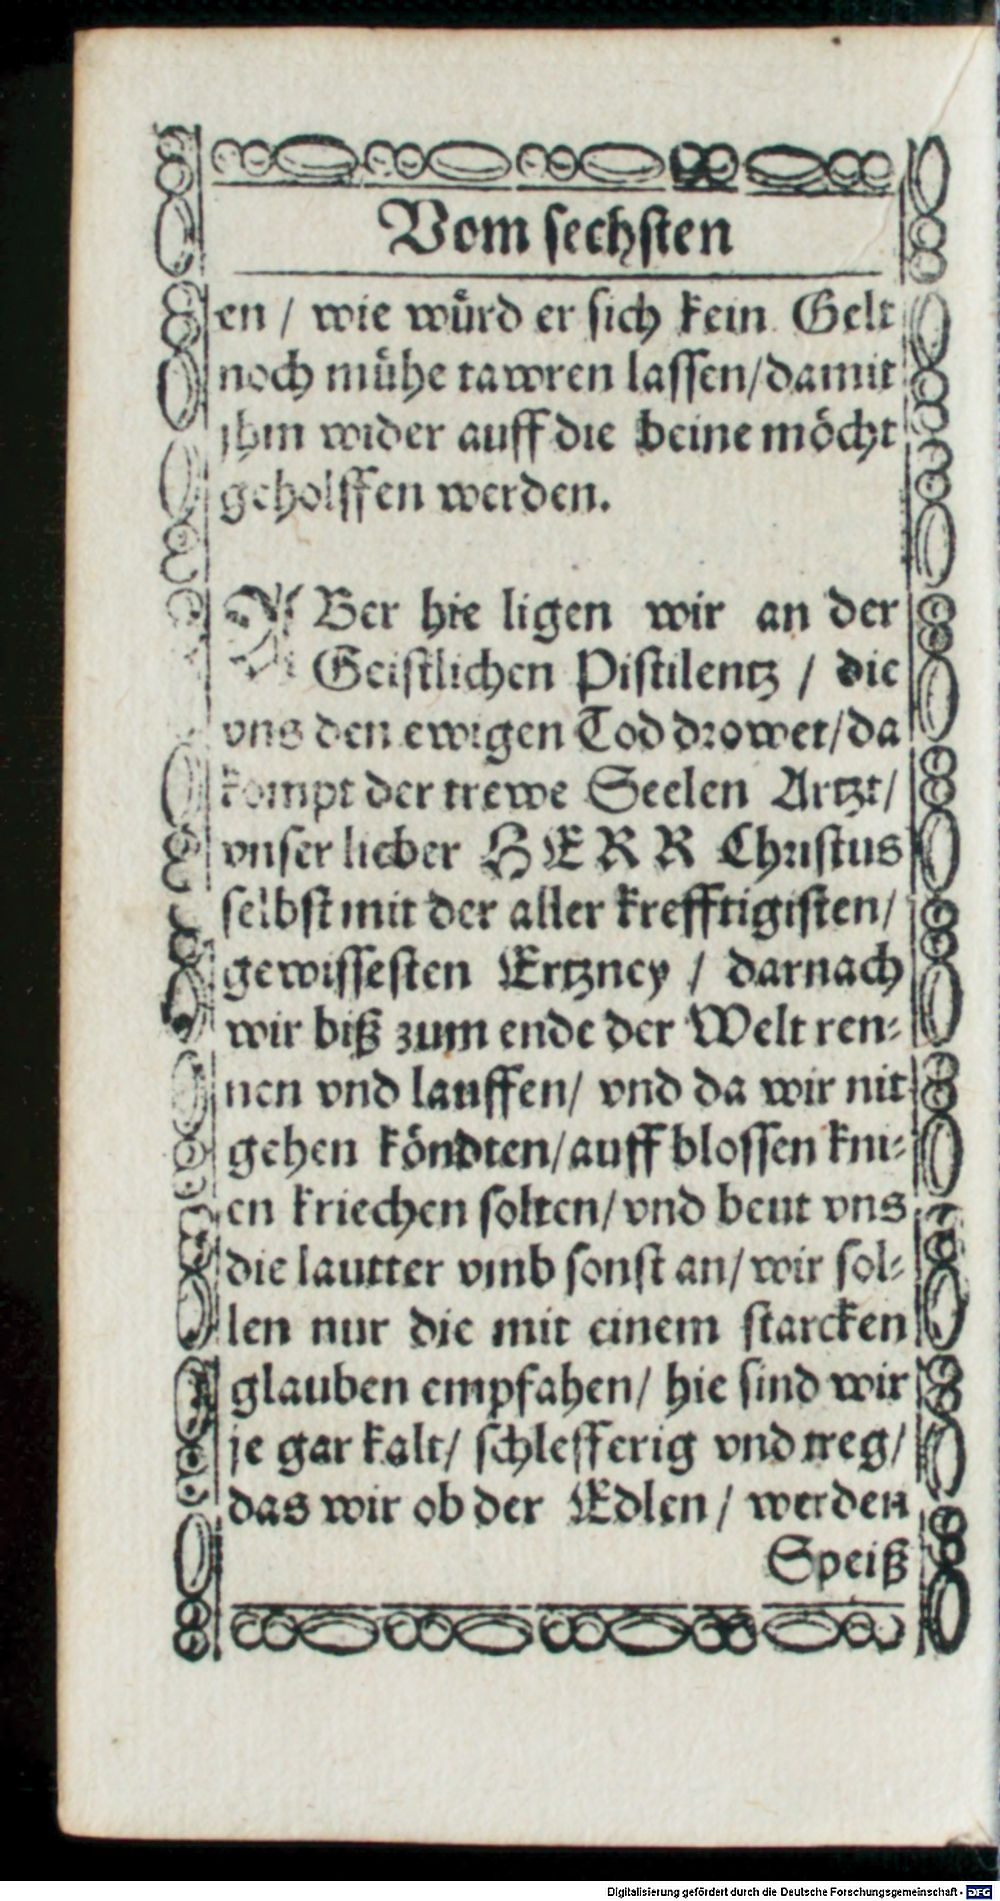 Vom sechsten
en / wie wuͤrd er sich kein Gelt
noch muͤhe tawren lassen/damit
jhm wider auff die beine moͤcht
geholffen werden.
ABer hie ligen wir an der
Geistlichen Pistilentz / die
vns den ewigen Tod drowet/da
kompt der trewe Seelen Artzt/
vnser lieber HERR Christus
selbst mit der aller krefftigisten/
gewissesten Ertzney / darnach
wir biß zum ende der Welt ren-
nen vnd lauffen/ vnd da wir nit
gehen koͤndten/auff blossen kni-
en kriechen solten/vnd beut vns
die lautter vmb sonst an/ wir sol-
len nur die mit einem starcken
glauben empfahen/ hie sind wir
je gar kalt/ schlefferig vnd treg/
das wir ob der Edlen / werden
Speiß
Digitalisierung gefördert durch die Deutsche Forschungsgemeinschaft - DFG